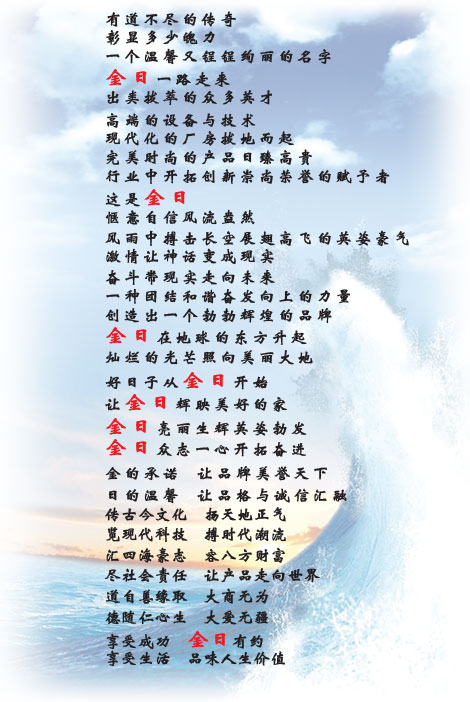 有道不尽的传奇
彰显多少魄力
一个温馨又铚铚绚丽的名字
金日一路走来
出类拔萃的众多英才
高端的设备与技术
现代化的厂房拔地而起
完美时尚的产品日臻高贵
行业中开拓创新崇尚荣誉的赋予者
这是金日
惬意自信风流盎然
风雨中搏击长空展翅高飞的英姿豪气
激情让神话变成现实
奋斗带现实走向未来
一种团结和谐奋发向上的力量
创造出一个勃勃辉煌的品牌
金日在地球的东方升起
灿烂的光芒照向美丽大地
好日子从金日开始
让金日辉映美好的家
金日亮丽生辉英姿勃发
金日众志一心开拓奋进
金的承诺 让品牌美誉天下
日的温馨 让品格与诚信汇融
传古今文化 扬天地正气
览现代科技 搏时代潮流
汇四海豪志 容八方财富
尽社会责任 让产品走向世界
道自善缘取 大商无为
德随仁心生 大爱无疆
享受成功 金日有约
享受生活 品味人生价值